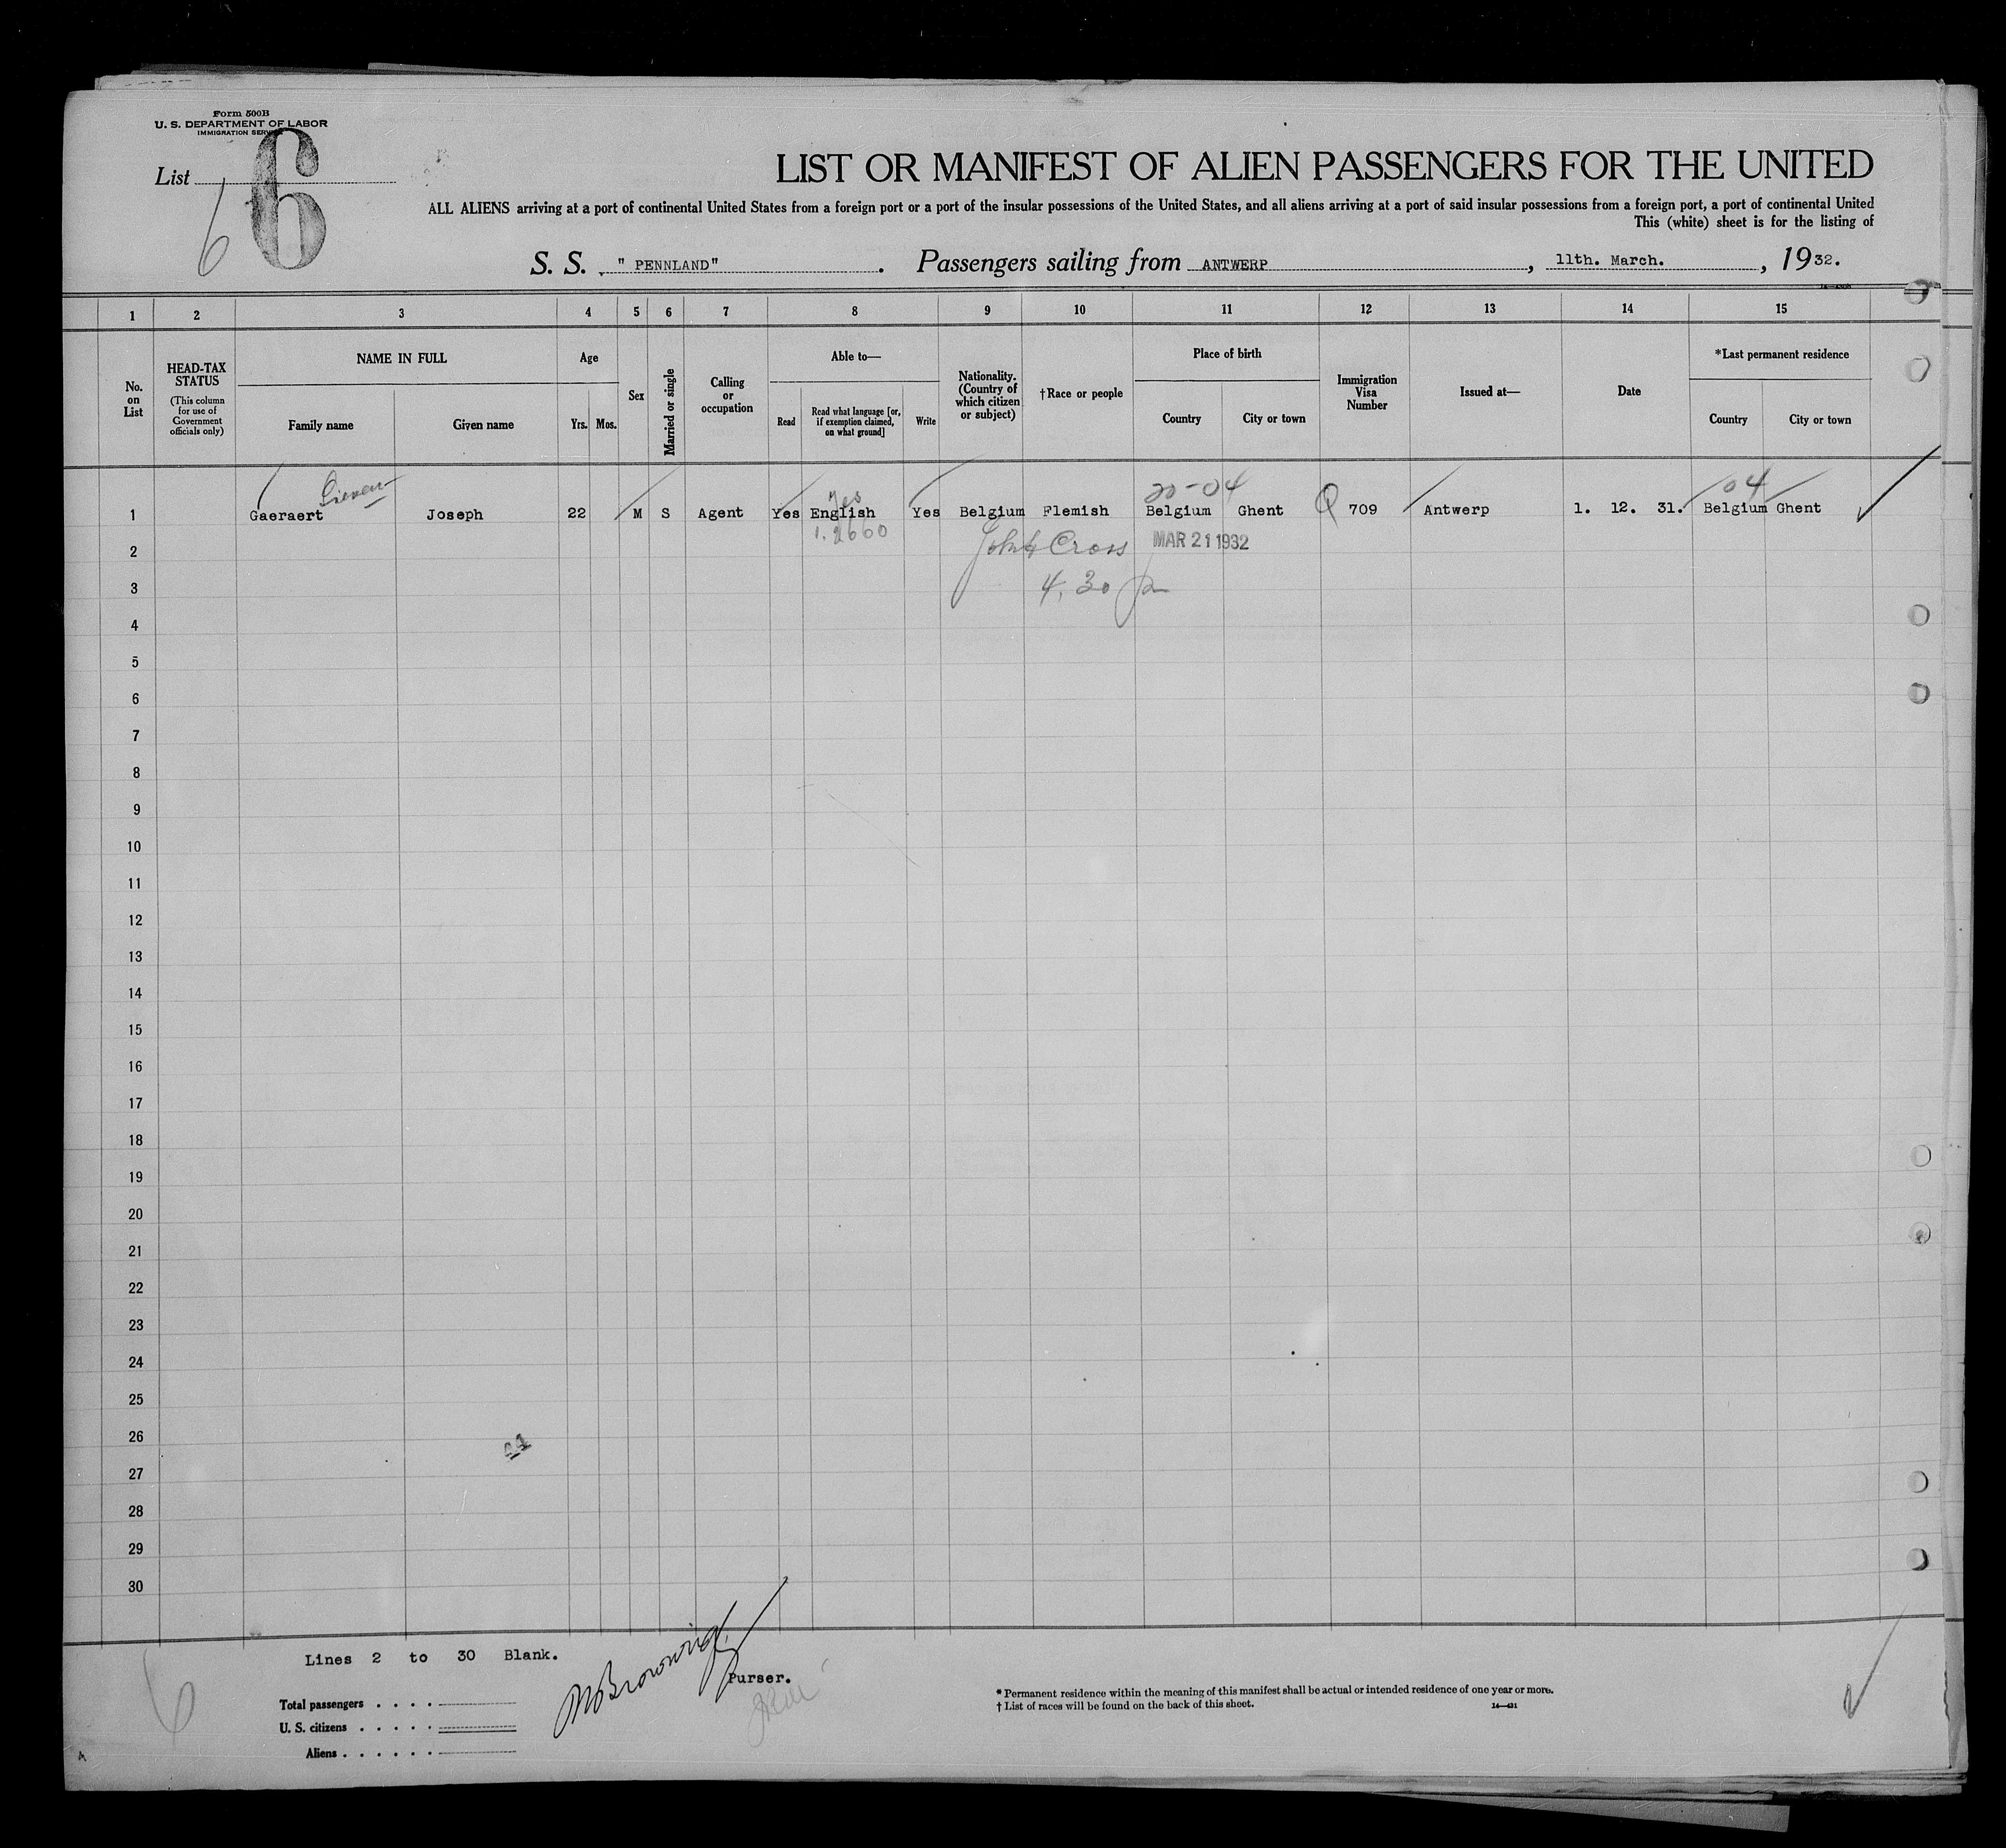 Form 500B
U. S. DEPARTMENT OF LABOR
IMMIGRATION SERVICE
List 6 6
LIST OR MANIFEST OF ALIEN PASSENGERS FOR THE UNITED
ALL ALIENS arriving at a port of continental United States from a foreign port or a port of the insular possessions of the United States, and all aliens arriving at a port of said insular possessions from a foreign port, a port of continental United
This (white) sheet is for the listing of
S. S. " PENNLAND" . Passengers sailing from ANTWERP , 11th. March. , 1932.
1 2 3 4 5 6 7 8 9 10 11 12 13 14 15
No. on List
HEAD-TAX STATUS
(This column for use of Government officials only)
NAME IN FULL
Family name
Given name
Age
Yrs. Mos.
Sex
Married or single
Calling or occupation
Able to—
Read
Read what language [or, if exemption claimed, on what ground]
Write
Nationality. (Country of which citizen or subject)
†Race or people
Place of birth
Country
City or town
Immigration Visa Number
Issued at—
Date
*Last permanent residence
Country
City or town
Lieven Yes 20-04 04
1 Gaeraert Joseph 22 M S Agent Yes English Yes Belgium Flemish Belgium Ghent Q 709 Antwerp 1. 12. 31. Belgium Ghent
1.2660
2 Cross MAR 21 1932
3 4.30
4
5
6
7
8
9
10
11
12
13
14
15
16
17
18
19
20
21
22
23
24
25
26
27
28
29
30
Lines 2 to 30 Blank.
Browning
Purser.
6
Total passengers . . . .
U. S. citizens . . . . .
Aliens . . . . . .
* Permanent residence within the meaning of this manifest shall be actual or intended residence of one year or more.
† List of races will be found on the back of this sheet.
14—431